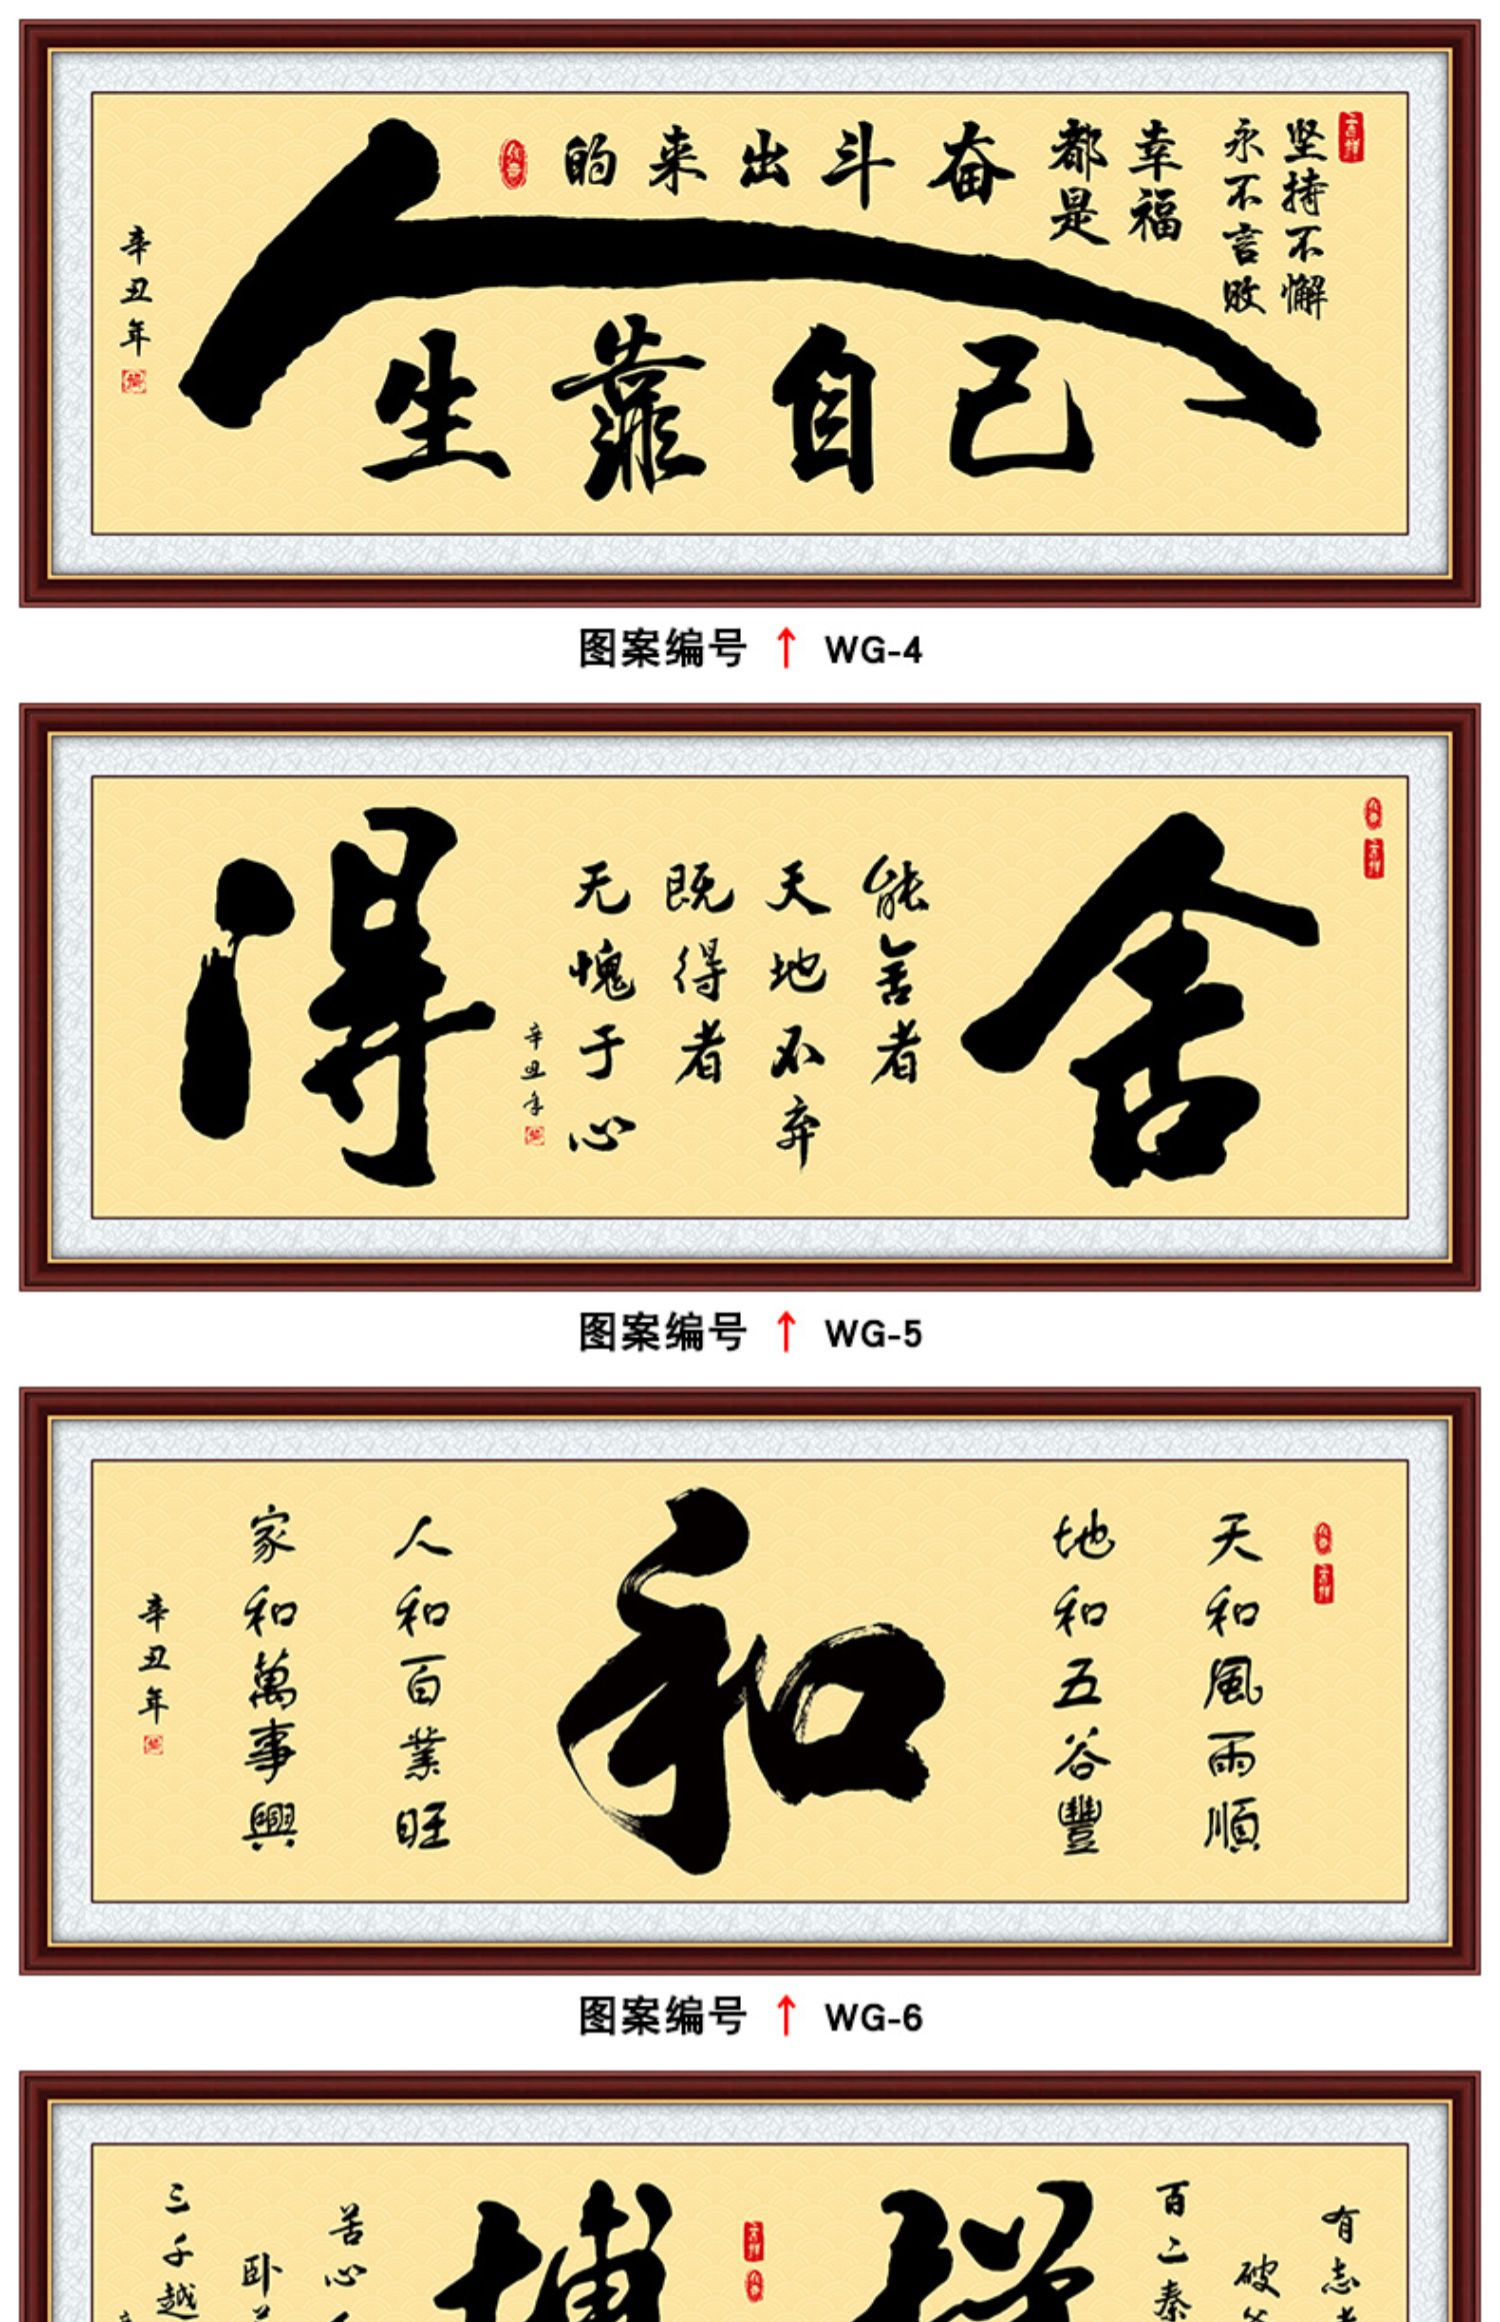 坚持不懈
永不言败
幸福
都是
奋斗出来的
人生靠自己
辛丑年
图案编号 ↑ WG-4
舍
能舍者
天地不弃
既得者
无愧于心
得
辛丑年
图案编号 ↑ WG-5
天和風雨順
地和五谷豐
和
人和百業旺
家和萬事興
辛丑年
图案编号 ↑ WG-6
有志者
破釜
百二秦
拼
搏
苦心
卧
三千越